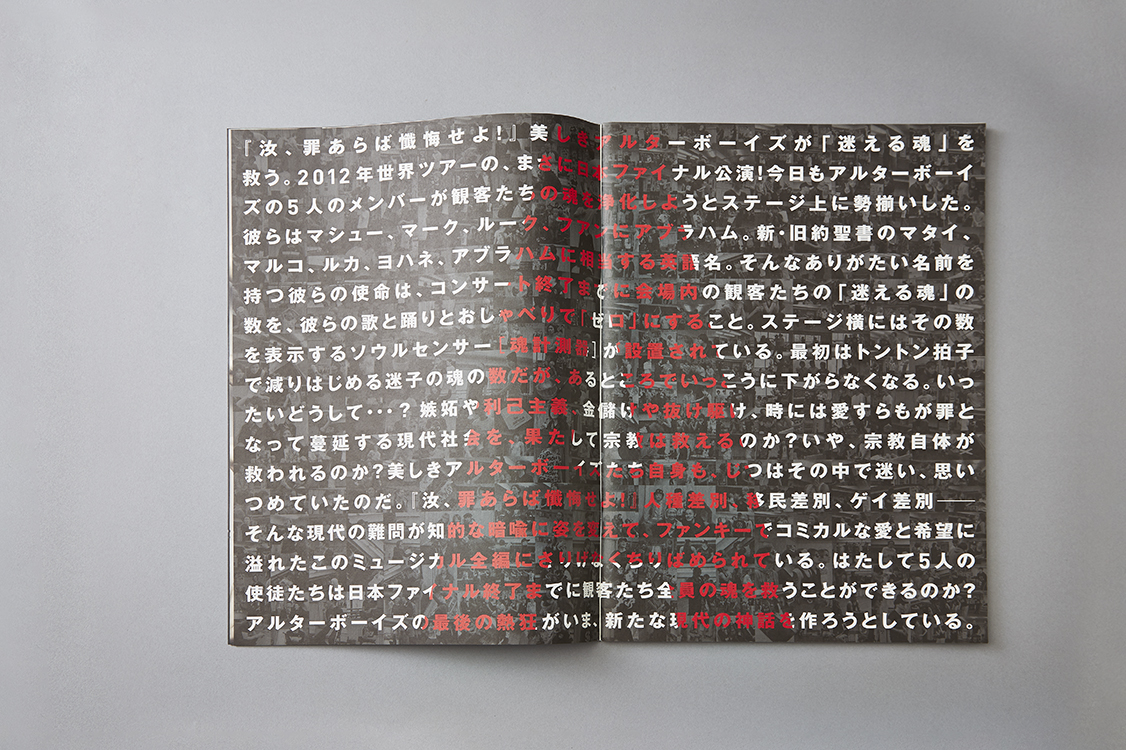 『汝、罪あらば懺悔せよ!』美しきアルターボーイズが「迷える魂」を
救う。2012年世界ツアーの、まさに日本ファイナル公演!今日もアルターボーイ
ズの5人のメンバーが観客たちの魂を浄化しようとステージ上に勢揃いした。
彼らはマシュー、マーク、ルーク、ファンにアブラハム。新・旧約聖書のマタイ、
マルコ、ルカ、ヨハネ、アブラハムに相当する英語名。そんなありがたい名前を
持つ彼らの使命は、コンサート終了までに会場内の観客たちの「迷える魂」の
数を、彼らの歌と踊りとおしゃべりで「ゼロ」にすること。ステージ横にはその数
を表示するソウルセンサー[魂計測器]が設置されている。最初はトントン拍子
で減りはじめる迷子の魂の数だが、あるところでいっこうに下がらなくなる。いっ
たいどうして・・・?嫉妬や利己主義、金儲けや抜け駆け、時には愛すらもが罪と
なって蔓延する現代社会を、果たして宗教は救えるのか?いや、宗教自体が
救われるのか?美しきアルターボーイズたち自身も、じつはその中で迷い、思い
つめていたのだ。『汝、罪あらば懺悔せよ!』人種差別、移民差別、ゲイ差別――
そんな現代の難問が知的な暗喩に姿を変えて、ファンキーでコミカルな愛と希望に
溢れたこのミュージカル全編にさりげなくちりばめられている。はたして5人の
使徒たちは日本ファイナル終了までに観客たち全員の魂を救うことができるのか?
アルターボーイズの最後の熱狂がいま、新たな現代の神話を作ろうとしている。